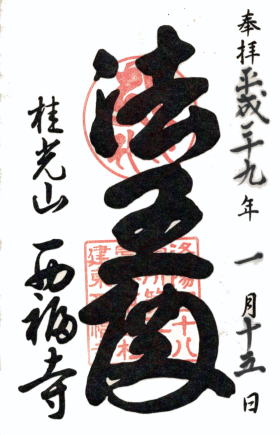 奉拝 平成二十九年 一月十五日
法王殿
桂光山 西福寺